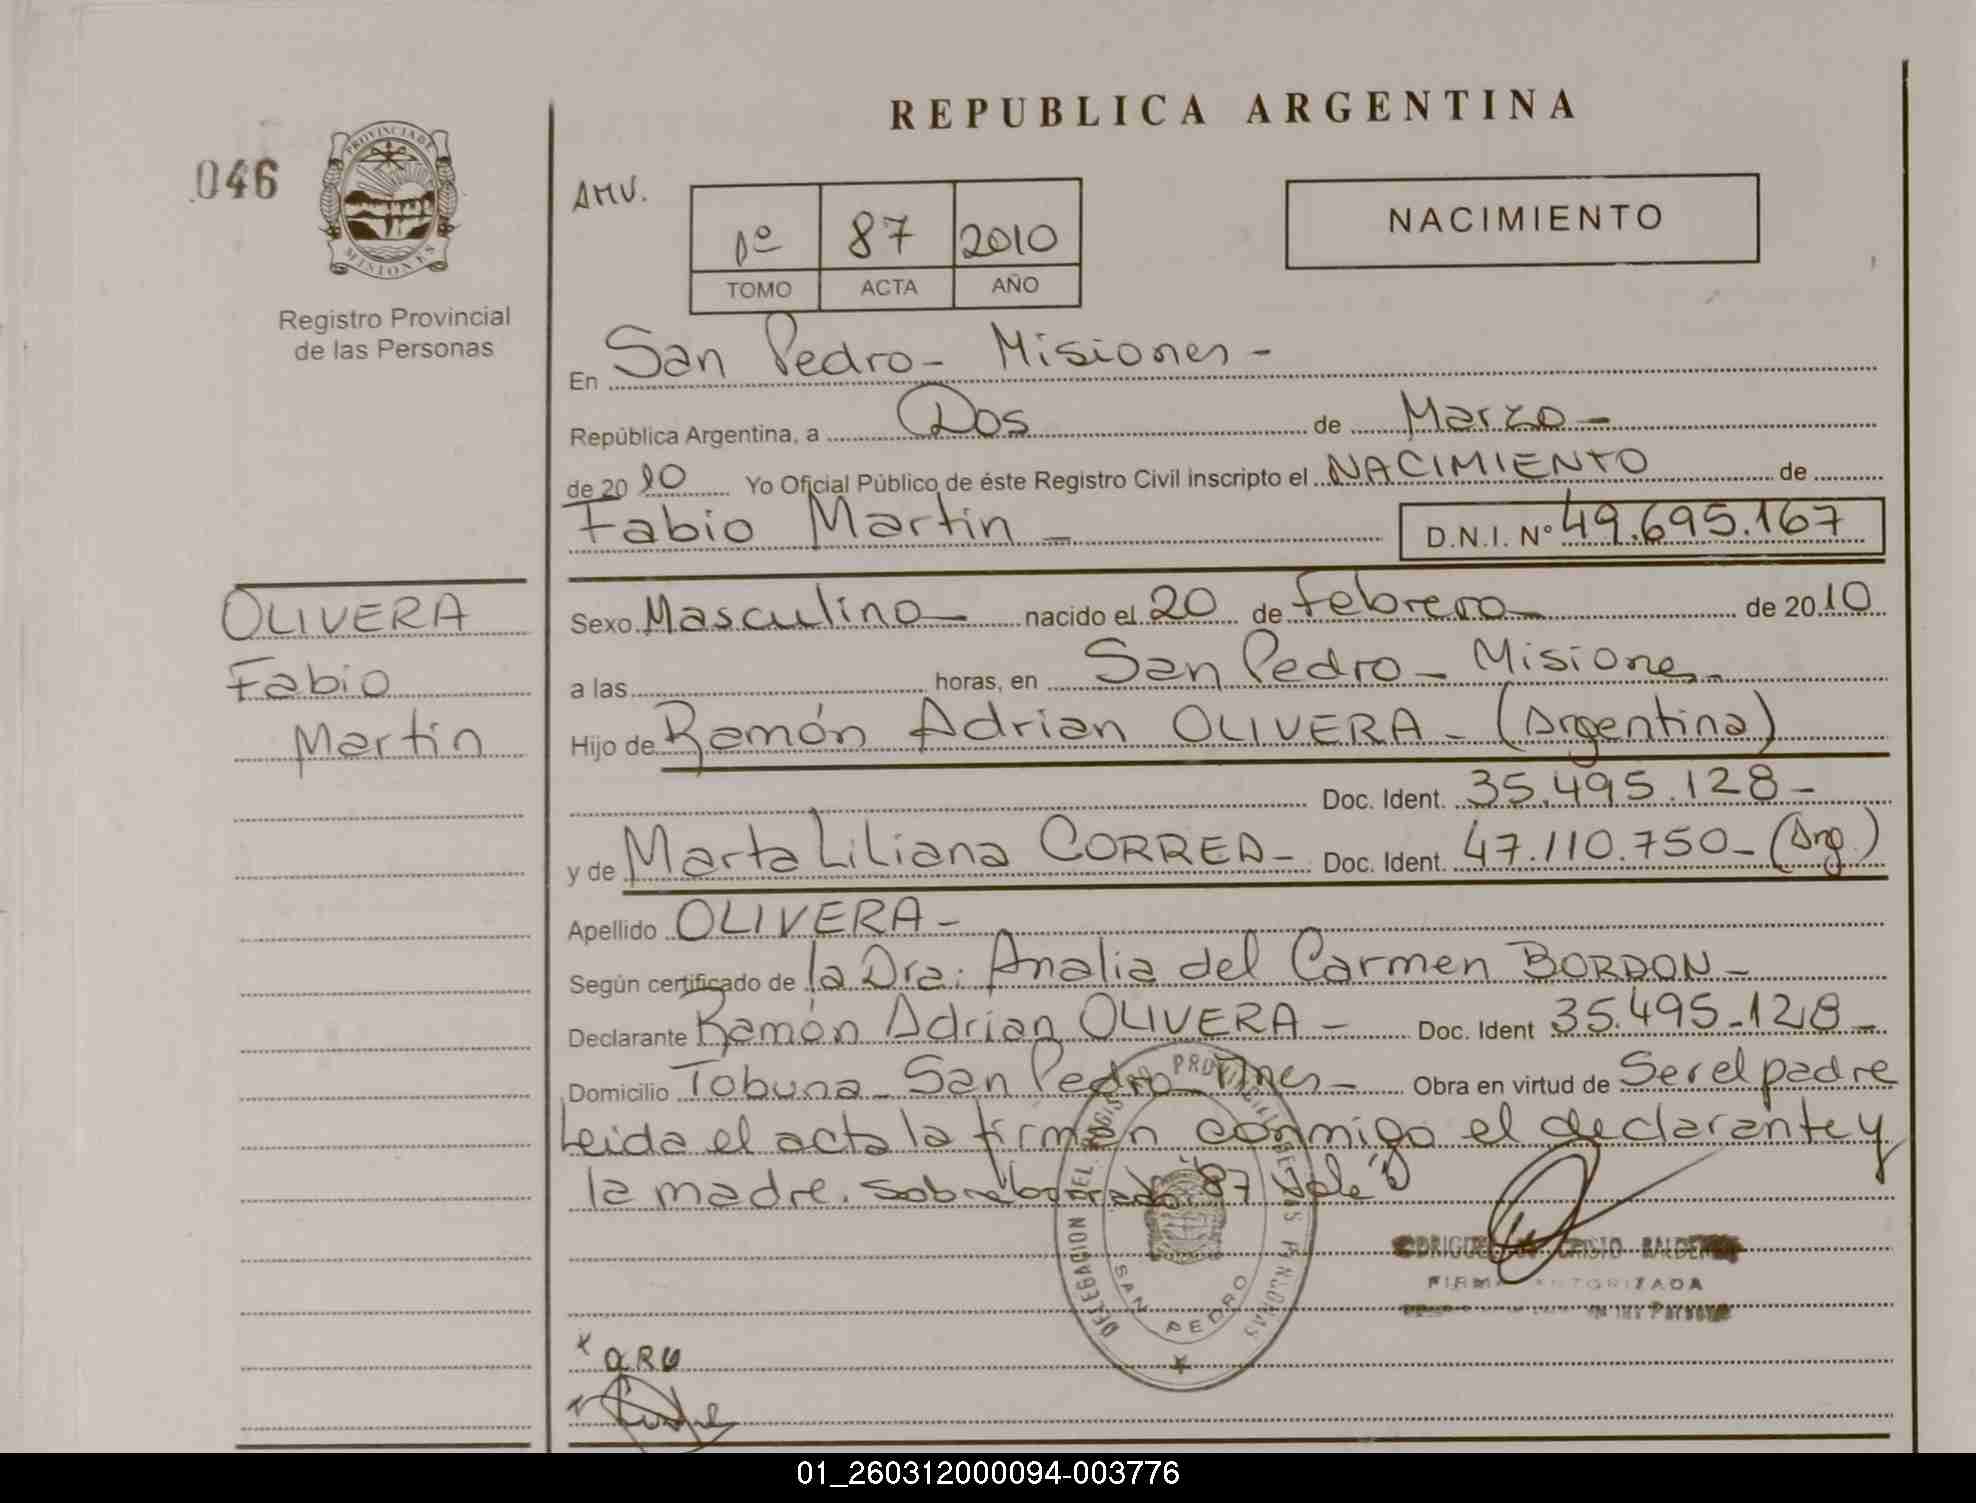 REPUBLICA ARGENTINA
046
PROVINCIA DE
MISIONES
Registro Provincial
de las Personas
AMV.
1º 87 2010
TOMO ACTA AÑO
NACIMIENTO
En San Pedro - Misiones -
República Argentina, a Dos de Marzo -
de 2010 Yo Oficial Público de éste Registro Civil inscripto el NACIMIENTO de
Fabio Martin - D.N.I. Nº 49.695.167
OLIVERA
Fabio
Martin
Sexo Masculino - nacido el 20 de Febrero - de 2010
a las horas, en San Pedro - Misiones -
Hijo de Ramón Adrian OLIVERA - (Argentina)
Doc. Ident. 35.495.128 -
y de Marta Liliana CORREA - Doc. Ident. 47.110.750 - (Arg.)
Apellido OLIVERA -
Según certificado de la Dra. Analia del Carmen BORDON -
Declarante Ramón Adrian OLIVERA - Doc. Ident 35.495.128 -
Domicilio Tobuna - San Pedro - Mnes - Obra en virtud de Ser el padre
Leida el acta la firman conmigo el declarante y
la madre. Sobreborrado "87" Vale"
DELEGACION DEL REGISTRO PROVINCIAL DE LAS PERSONAS
SAN PEDRO
FIRMA AUTORIZADA
de las Personas
01_260312000094-003776